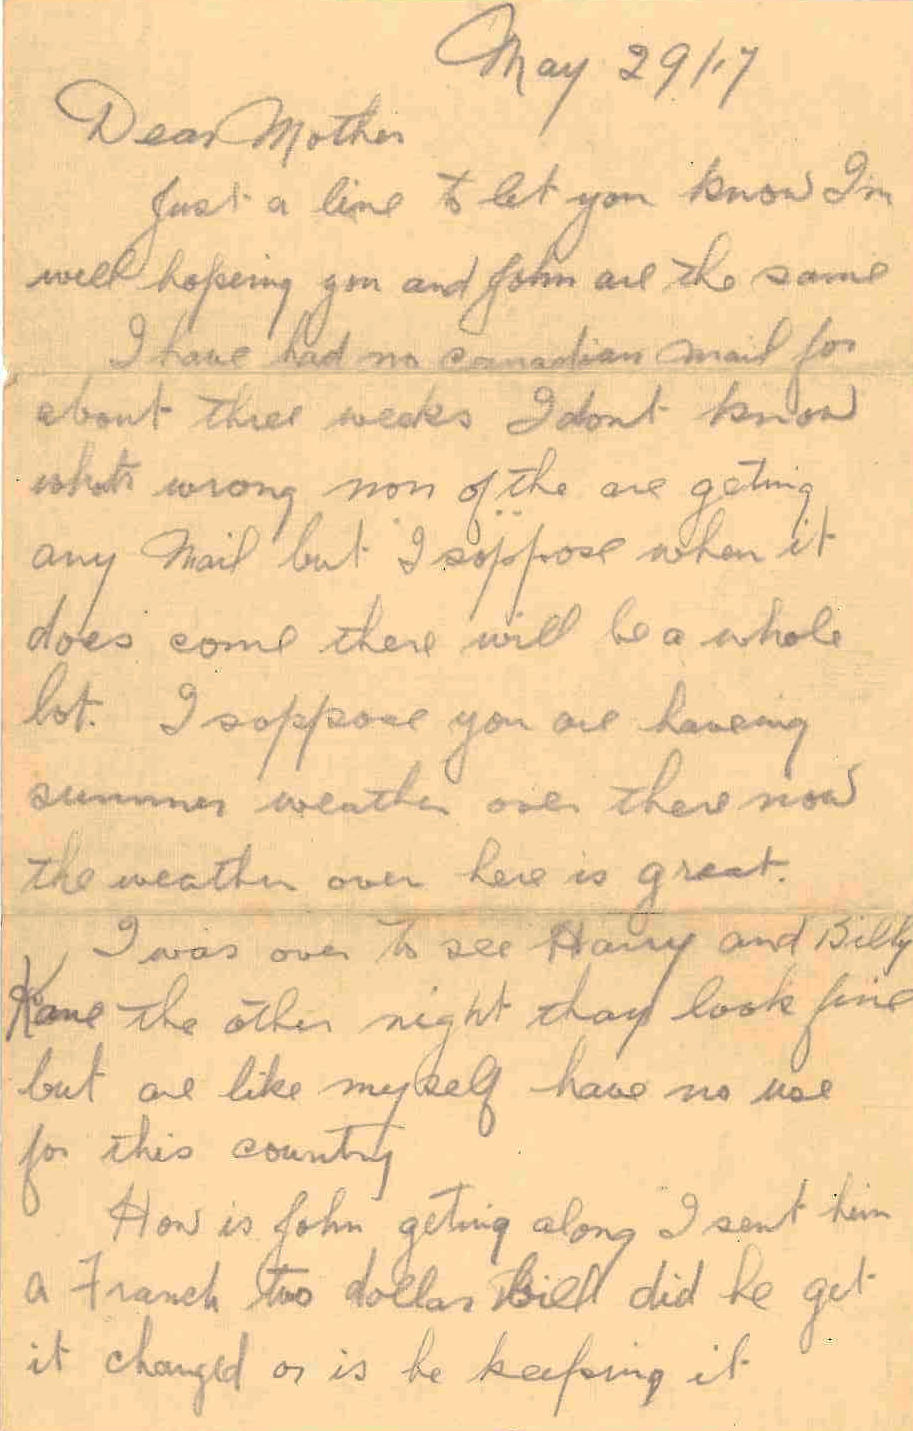 May 29/17
Dear Mother
Just a line to let you know I'm
well hopeing you and John are the same
I have had no canadian mail for
about three weeks I dont know
whats wrong non of the are geting
any Mail but I soppose when it
does come there will be a whole
lot. I soppose you are haveing
summer weather over there now
the weather over here is great.
I was over to see Harry and Billy
Kane the other night thay look fine
but are like myself have no use
for this country
How is John geting along I sent him
a Franch two dollar Bill did he get
it changed or is he keeping it